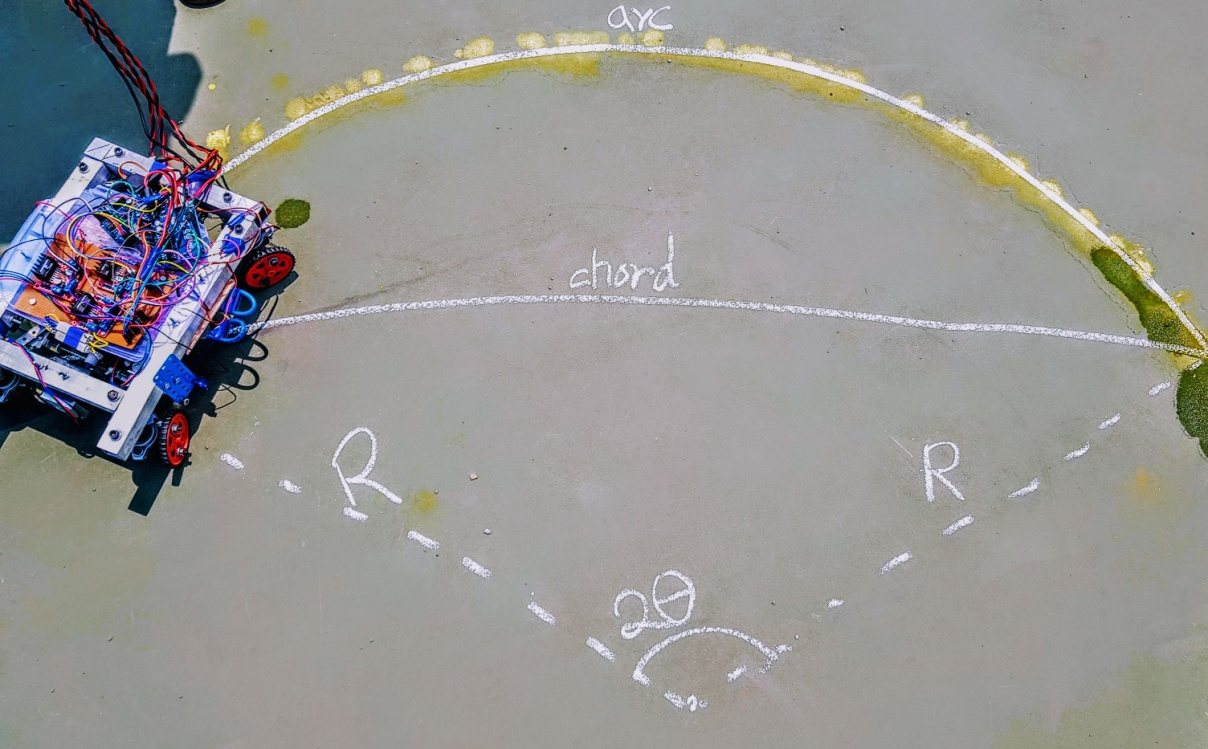 arc
chord
R
R
2θ